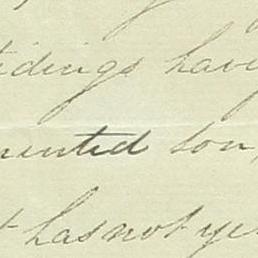 tidings have
mented son,
t has not ye